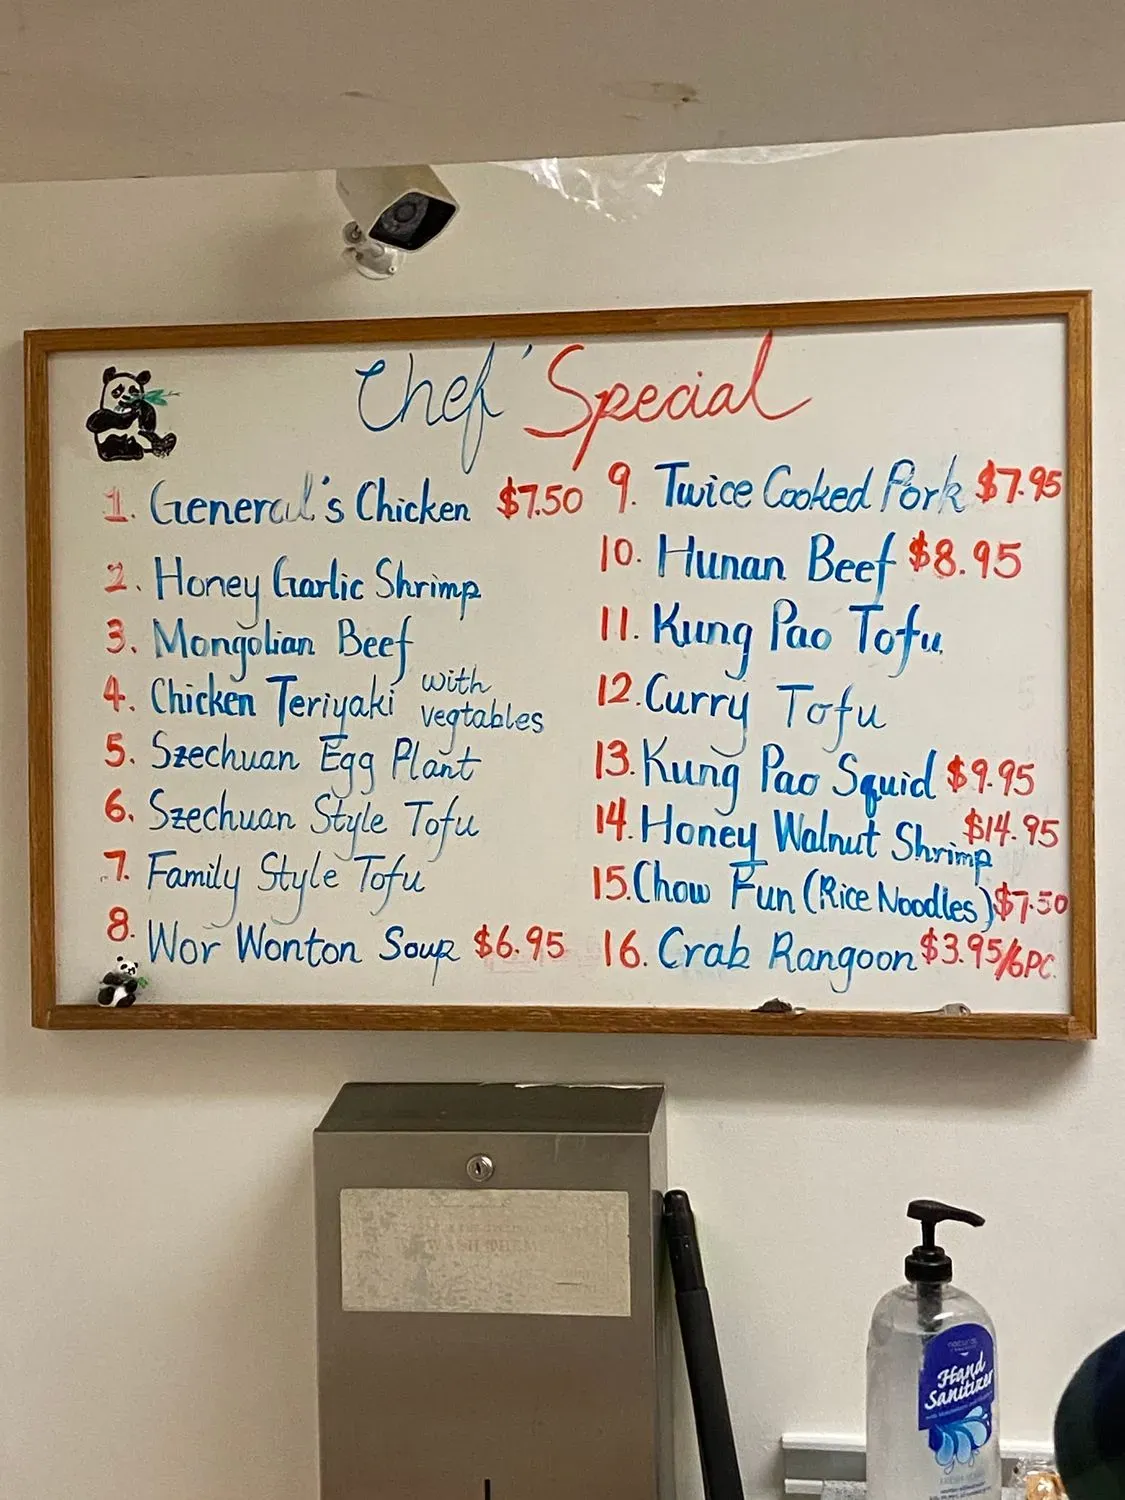 Chef' Special
1. General's Chicken $7.50
2. Honey Garlic Shrimp
3. Mongolian Beef
4. Chicken Teriyaki with vegtables
5. Szechuan Egg Plant
6. Szechuan Style Tofu
7. Family Style Tofu
8. Wor Wonton Soup $6.95
9. Twice Cooked Pork $7.95
10. Hunan Beef $8.95
11. Kung Pao Tofu
12. Curry Tofu
13. Kung Pao Squid $9.95
14. Honey Walnut Shrimp $14.95
15. Chow Fun (Rice Noodles) $7.50
16. Crab Rangoon $3.95/6PC.
Hand
Sanitizer